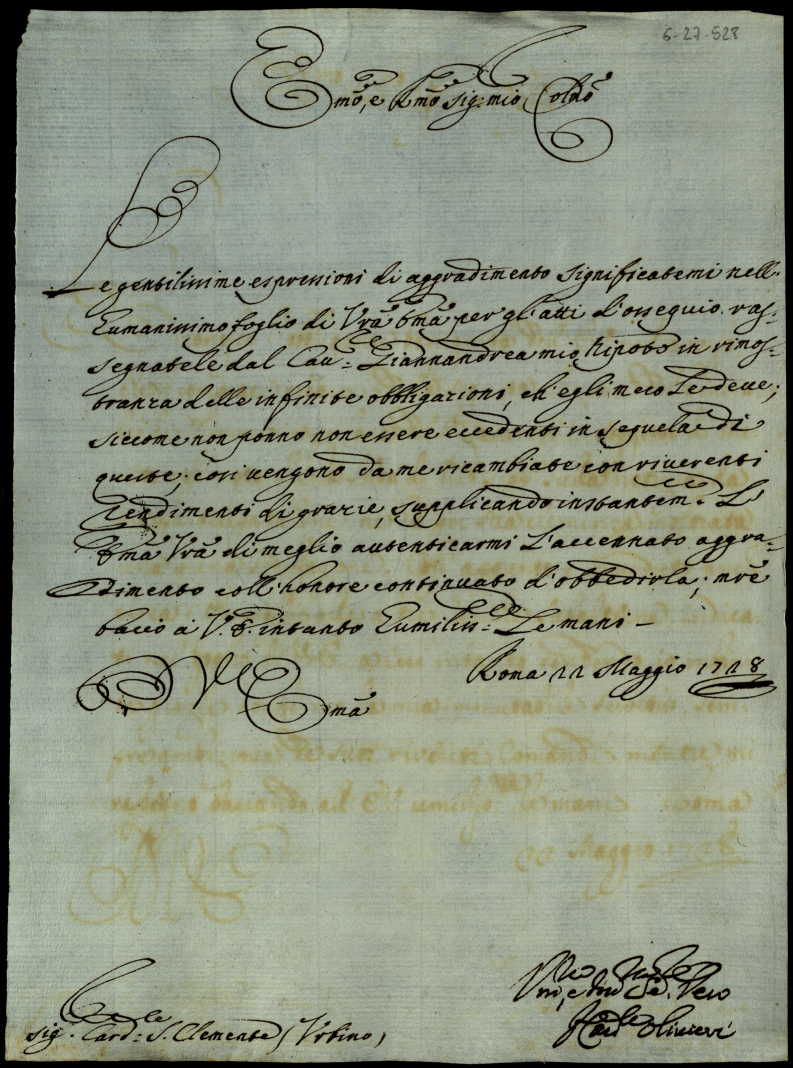 6-27-528
Emo, e Rmo Sig: mio Colmo
Le gentilissime espressioni di aggradimento significatemi nell'
Eumanissimo foglio di Vra Emã per gl'atti d'ossequio ras=
segnatele dal Cau:re Giannandrea mio Nipote in rimos=
tranza delle infinite obbligazioni, ch'egli meco Le deue;
siccome non ponno non essere eccedenti in seguela di
queste; così vengono da me ricambiate con riuerenti
rendimenti di grazie, supplicando instantem:te L'
Emã Vrã di meglio autenticarmi L'accennato aggra=
dimento coll'honore continuato d'obbedirla; mrẽ
bacio a V.E. intanto Eumiliss:te Le mani –
Roma 22 Maggio 1728
V Emã
Sig.r Card:le S. Clemente (Urbino)
Vmo, e Seruo Vero
Card:le Oliuieri